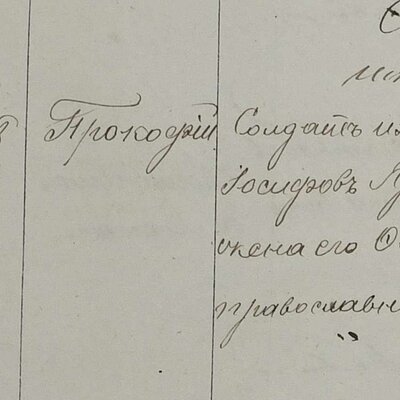 Прокофій Солдатъ
Іосифовъ
жена его
православн